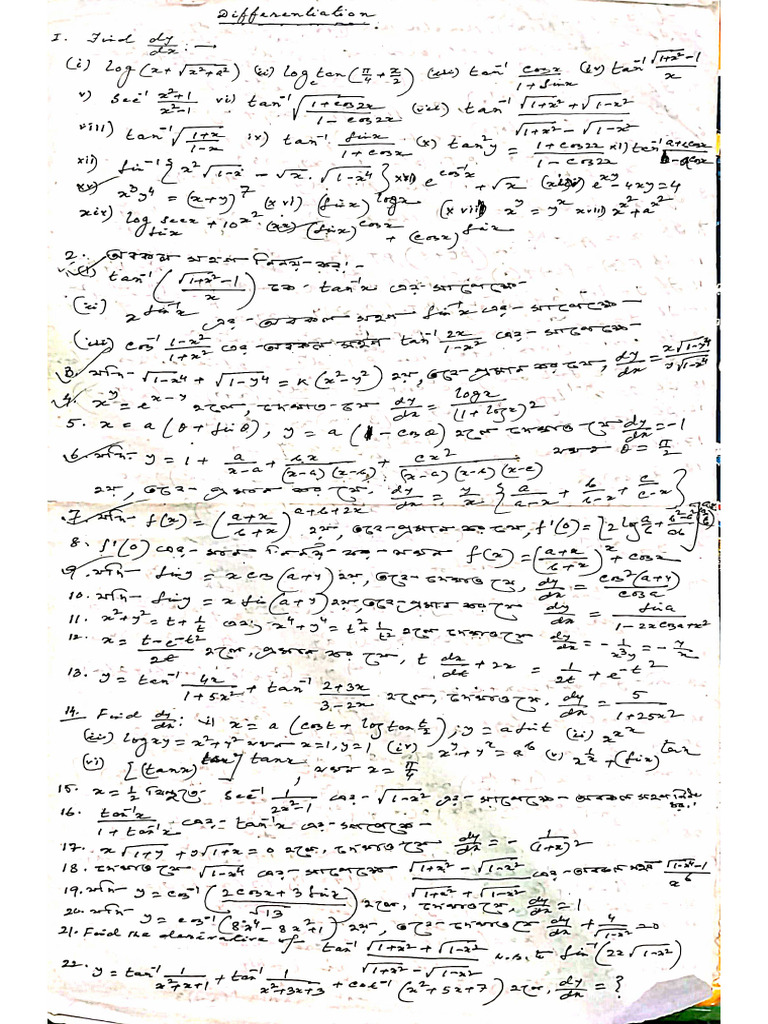 Differentiation
I. Find dy/dx : —
(i) log(x+√(x²+a²)) (ii) logₑ tan(π/4 + x/2) (iii) tan⁻¹ cosx/(1+sinx) (iv) tan⁻¹ (√(1+x²)-1)/x
v) sec⁻¹ (x²+1)/(x²-1) vi) tan⁻¹ √((1+cos2x)/(1-cos2x)) (vii) tan⁻¹ (√(1+x²)+√(1-x²))/(√(1+x²)-√(1-x²))
viii) tan⁻¹ √((1+x)/(1-x)) ix) tan⁻¹ sinx/(1+cosx) (x) tan²y = (1+cos2x)/(1-cos2x) xi) tan⁻¹
xii) sin⁻¹{x²√(1-x) - √x·√(1-x⁴)} e^(cos⁻¹x) + √x e^(xy) - 4xy = 4
xv) y⁴ = (x+y)⁷ (xvi) (sinx)^(logx) (xvii) x^y = y^x xviii) x^(x²) + a^(x²)
xix) log_(sinx) secx + 10^(x²) (xx) (sinx)^(cosx) + (cosx)^(sinx)
2. অবকল সহগ নির্ণয় কর :-
(i) tan⁻¹((√(1+x²)-1)/x) কে tan⁻¹x এর সাপেক্ষে
(ii) 2^(sin⁻¹x) এর অবকল সহগ sin⁻¹x এর সাপেক্ষে
(iii) cos⁻¹ (1-x²)/(1+x²) এর অবকল সহগ tan⁻¹ 2x/(1-x²) এর সাপেক্ষে
3. যদি √(1-x⁴) + √(1-y⁴) = k(x²-y²) হয়, তবে প্রমাণ কর যে, dy/dx = x√(1-y⁴)/y√(1-x⁴)
4. x^y = e^(x-y) হলে, দেখাও যে dy/dx = logx/(1+logx)²
5. x = a(θ+sinθ), y = a(1-cosθ) হলে দেখাও যে dy/dx = -1 যখন θ = π/2
6. যদি y = 1 + a/(x-a) + bx/((x-a)(x-b)) + cx²/((x-a)(x-b)(x-c))
হয়, তবে প্রমাণ কর যে, dy/dx = y/x {a/(a-x) + b/(b-x) + c/(c-x)}
7. যদি f(x) = ((a+x)/(b+x))^(a+b+2x) হয়, তবে প্রমাণ কর যে, f'(0) = [2log a/b + (b²-a²)/ab](a/b)^(a+b)
8. f'(0) এর মান নির্ণয় কর যখন f(x) = ((a+x)/(b+x))^x + cosx
9. যদি siny = x cos(a+y) হয়, তবে দেখাও যে, dy/dx = cos²(a+y)/cosa
10. যদি siny = x sin(a+y) হয়, তবে প্রমাণ কর যে dy/dx = sina/(1-2xcosa+x²)
11. x²+y² = t+1/t এবং x⁴+y⁴ = t²+1/t² হলে দেখাও যে dy/dx = -1/(x³y) = -y/x
12. x = (t-e^(-t²))/2t² হলে, প্রমাণ কর যে, t dx/dt + 2x = 1/2t + e^(-t²)
13. y = tan⁻¹ 4x/(1+5x²) + tan⁻¹ (2+3x)/(3-2x) হলে, দেখাও যে, dy/dx = 5/(1+25x²)
14. Find dy/dx : i) x = a(cost + log tan t/2), y = a sint (ii) x^(x^x)
(iii) logxy = x²+y² যখন x=1, y=1 (iv) x^y + y^x = a^b (v) x^(1/x) + (sinx)^(tanx)
(vi) [(tanx)^(tanx)]^(tanx), যখন x = π/4
15. x = 1/2 বিন্দুতে sec⁻¹ 1/(2x²-1) এর √(1-x²) এর সাপেক্ষে অবকল সহগ নির্ণয় কর।
16. tan⁻¹x/(1+tan⁻¹x) এর tan⁻¹x এর সাপেক্ষে
17. x√(1+y) + y√(1+x) = 0 হলে, দেখাও যে dy/dx = -1/(1+x)²
18. দেখাও যে √(1-x⁴) এর সাপেক্ষে (√(1+x²)-√(1-x²))/(√(1+x²)+√(1-x²)) এর অবকল সহগ (√(1-x⁴)-1)/x⁶
19. যদি y = cos⁻¹((2cosx+3sinx)/√13) হলে, দেখাও যে, dy/dx = 1
20. যদি y = cos⁻¹(8x⁴-8x²+1) হয়, তবে দেখাও যে dy/dx + 4/√(1-x²) = 0
21. Find the derivative of tan⁻¹ (√(1+x²)+√(1-x²))/(√(1+x²)-√(1-x²)) w.r. to sin⁻¹(2x√(1-x²))
22. y = tan⁻¹ 1/(x²+x+1) + tan⁻¹ 1/(x²+3x+3) + cot⁻¹(x²+5x+7) হলে, dy/dx = ?